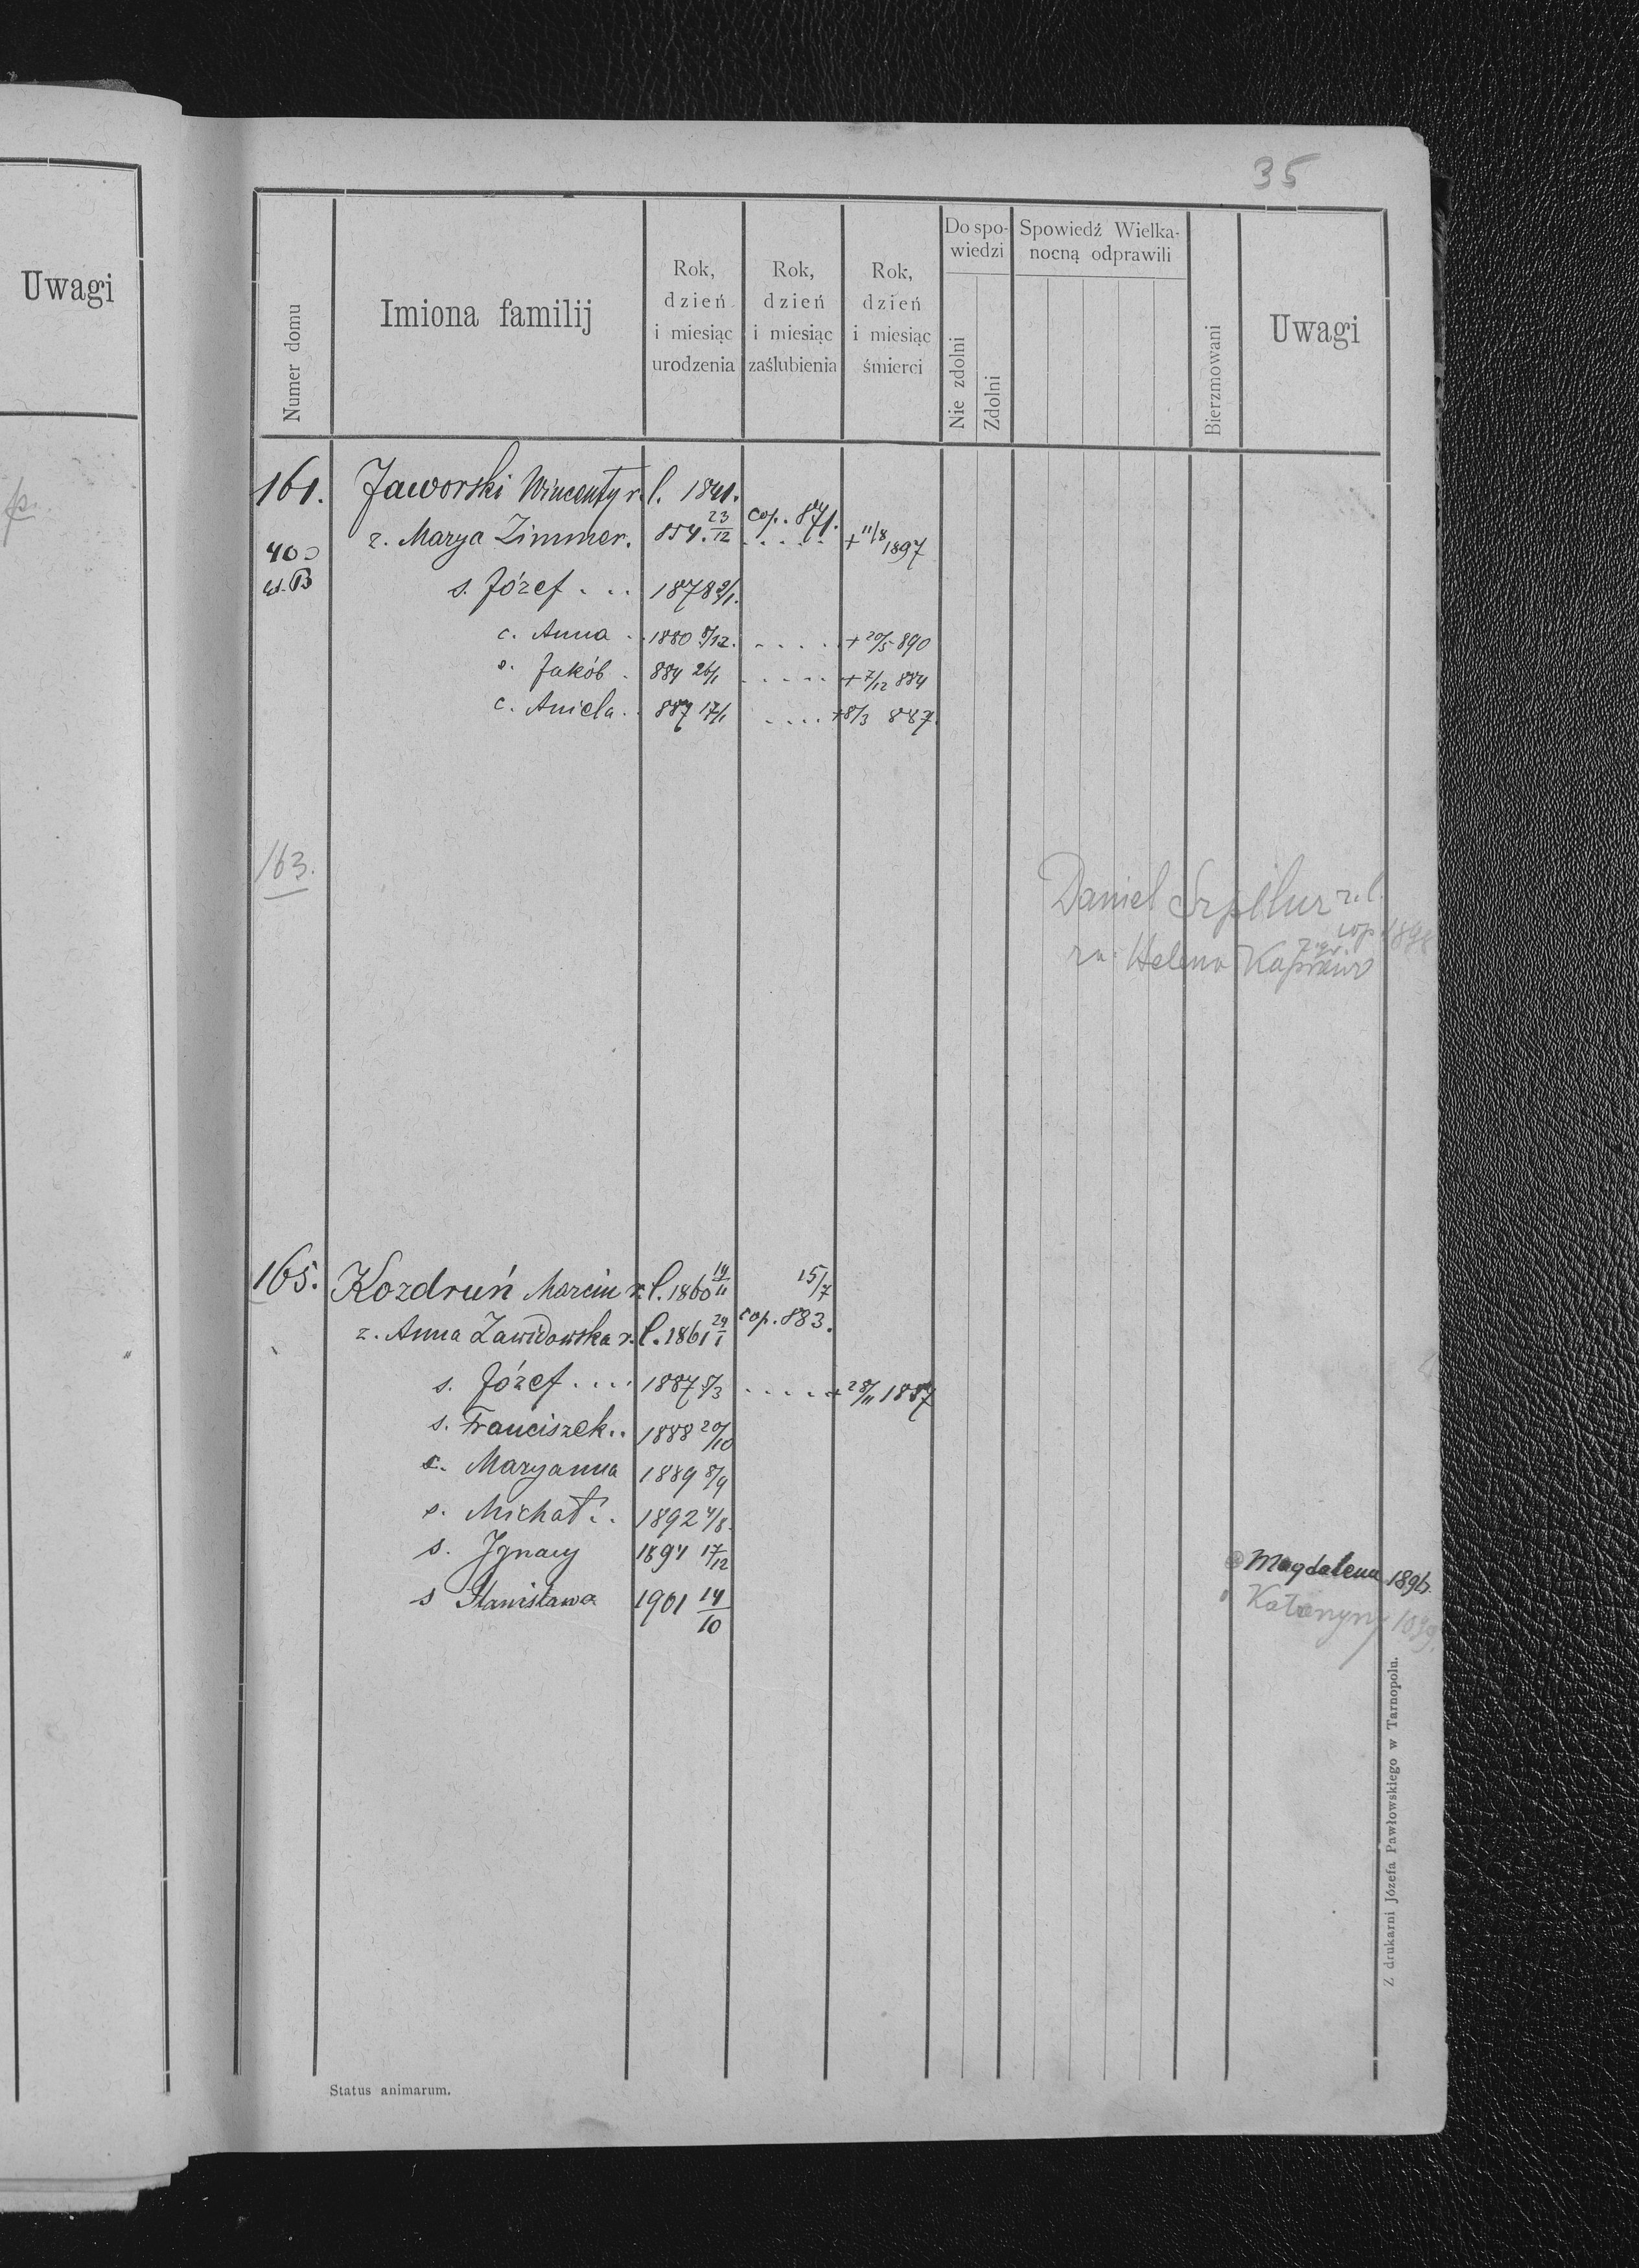 35
Uwagi
Numer domu
Imiona familij
Rok,
dzień
i miesiąc
urodzenia
Rok,
dzień
i miesiąc
zaślubienia
Rok,
dzień
i miesiąc
śmierci
Do spo-
wiedzi
Nie zdolni
Zdolni
Spowiedź Wielka-
nocną odprawili
Bierzmowani
Uwagi
161. Jaworski Wincenty r. l. 1841.
z. Marya Zimmer. 854. 23/12 cop. 871. + 11/8 1897
40
B
s. Józef . . . 1878 2/1.
c. Anna . . 1880 8/12. . . . . . + 20/5 890
s. Jakób . 884 26/1 . . . . . + 7/12 884
c. Aniela . . 887 17/1 . . . . +8/3 887.
163.
Daniel r. l.
cop. 1898
Helena
165. Kozdruń Marcin r. l. 1860 14/11 15/7
z. Anna Zawidowska r. l. 1861 24/1 cop. 883.
s. Józef . . . . 1887 8/3 . . . . . + 28/11 1887
s. Franciszek . . 1888 20/10
c. Maryanna 1889 8/9
s. Michał . . 1892 4/8.
s. Ignacy 1894 17/12
s Stanisława 1901 14/10
Magdalena 1896.
Katarzyny 1899.
Z drukarni Józefa Pawłowskiego w Tarnopolu.
Status animarum.